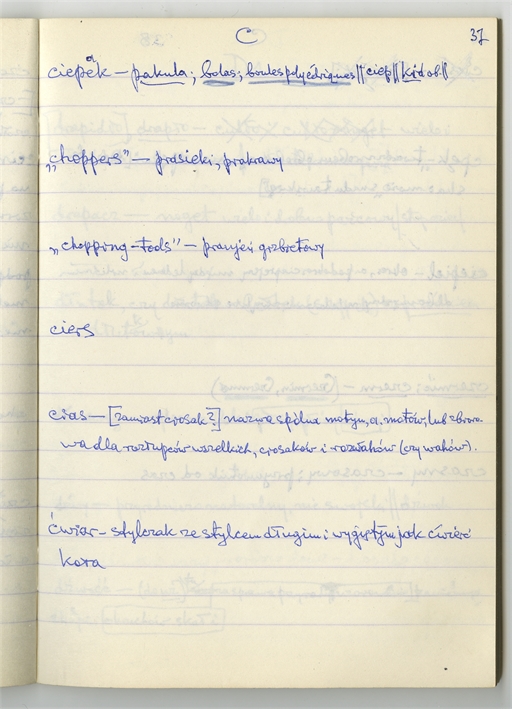 C
37
ciepek — pakuła; bolas; boules polyédriques || ciep || kidob. ||
„choppers” — prasieki, prakrawy
„chopping-tools” —
ciers
cias — [zamiast crosak?] nazwa spólna motyn, a. motów, lub zbioro-
wa dla roztupców wszelkich, crosaków i rozwahów (czy wahów).
ćwiar — stylczak ze stylcem długim i wygiętym jak ćwierć
koła